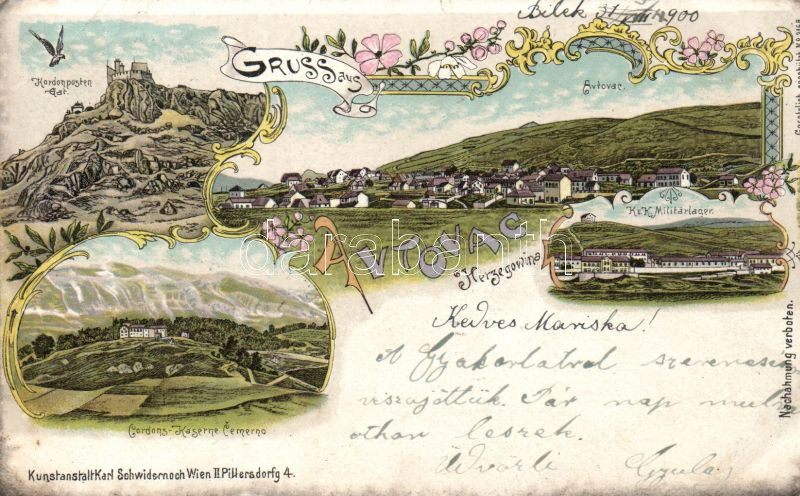 Bilek 1900
Kordonposten
Gat.
GRUSS aus
Avtovac.
K.u.K. Militärlager.
AVTOVAC
Herzegowina
darabanth.com
Kedves Mariska!
A Gyakorlatról szerencsésen
visszajöttük. Pár nap mulva
otthon leszek.
Üdvözli Gyula
Cordons-Kaserne Čemerno
Kunstanstalt Karl Schwidernoch Wien II. Pillersdorfg 4.
Nachahmung verboten.